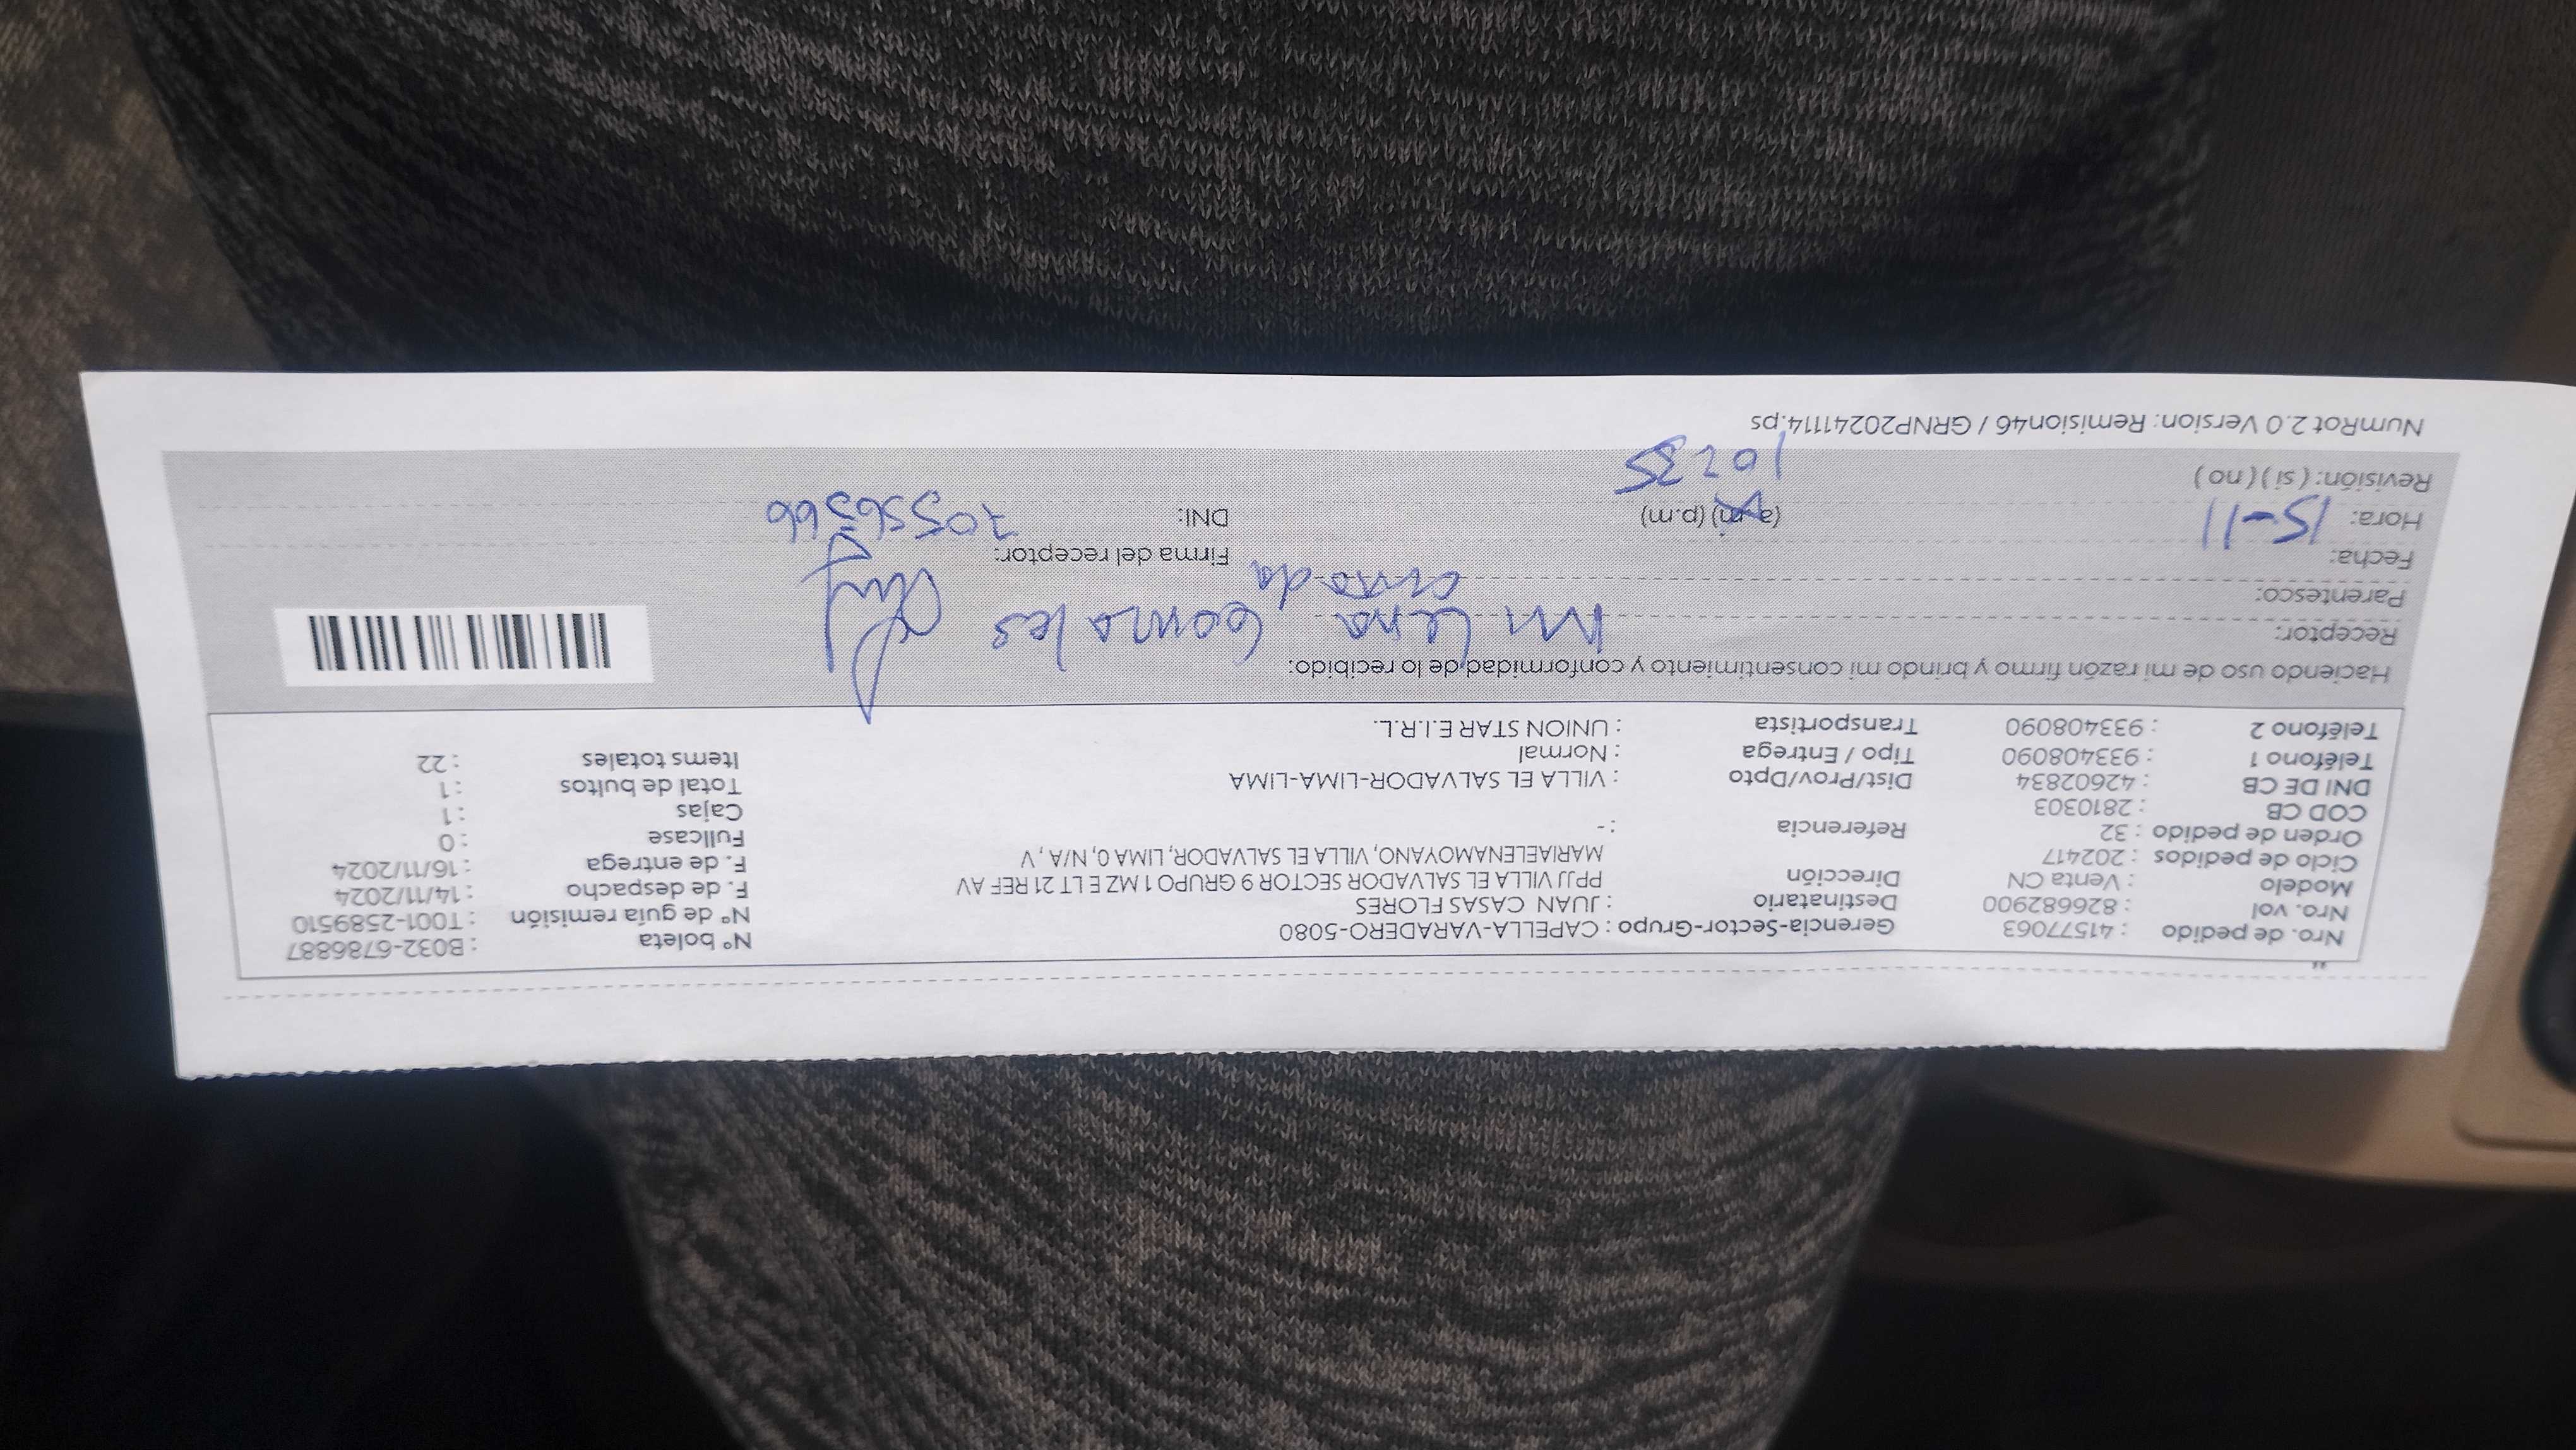 Nro. de pedido : 41577063 Gerencia-Sector-Grupo : CAPELLA-VARADERO-5080 N° boleta : B032-6786887
Nro. vol : 826682900 Destinatario : JUAN CASAS FLORES N° de guía remisión : T001-2589510
Modelo : Venta CN Dirección PPJJ VILLA EL SALVADOR SECTOR 9 GRUPO 1 MZ E LT 21 REF AV F. de despacho : 14/11/2024
Ciclo de pedidos : 202417 MARIAELENAMOYANO, VILLA EL SALVADOR, LIMA 0, N/A , V F. de entrega : 16/11/2024
Orden de pedido : 32 Referencia : - Fullcase : 0
COD CB : 2810303 Cajas : 1
DNI DE CB : 42602834 Dist/Prov/Dpto : VILLA EL SALVADOR-LIMA-LIMA Total de bultos : 1
Teléfono 1 : 933408090 Tipo / Entrega : Normal Items totales : 22
Teléfono 2 : 933408090 Transportista : UNION STAR E.I.R.L.
Haciendo uso de mi razón firmo y brindo mi consentimiento y conformidad de lo recibido:
Receptor: Milena Gonzales
Parentesco:
Fecha: Firma del receptor:
Hora: 15-11 (a.m) (p.m) DNI: 70556566
Revisión: ( si ) ( no ) 10:35
NumRot 2.0 Version: Remision46 / GRNP20241114.ps